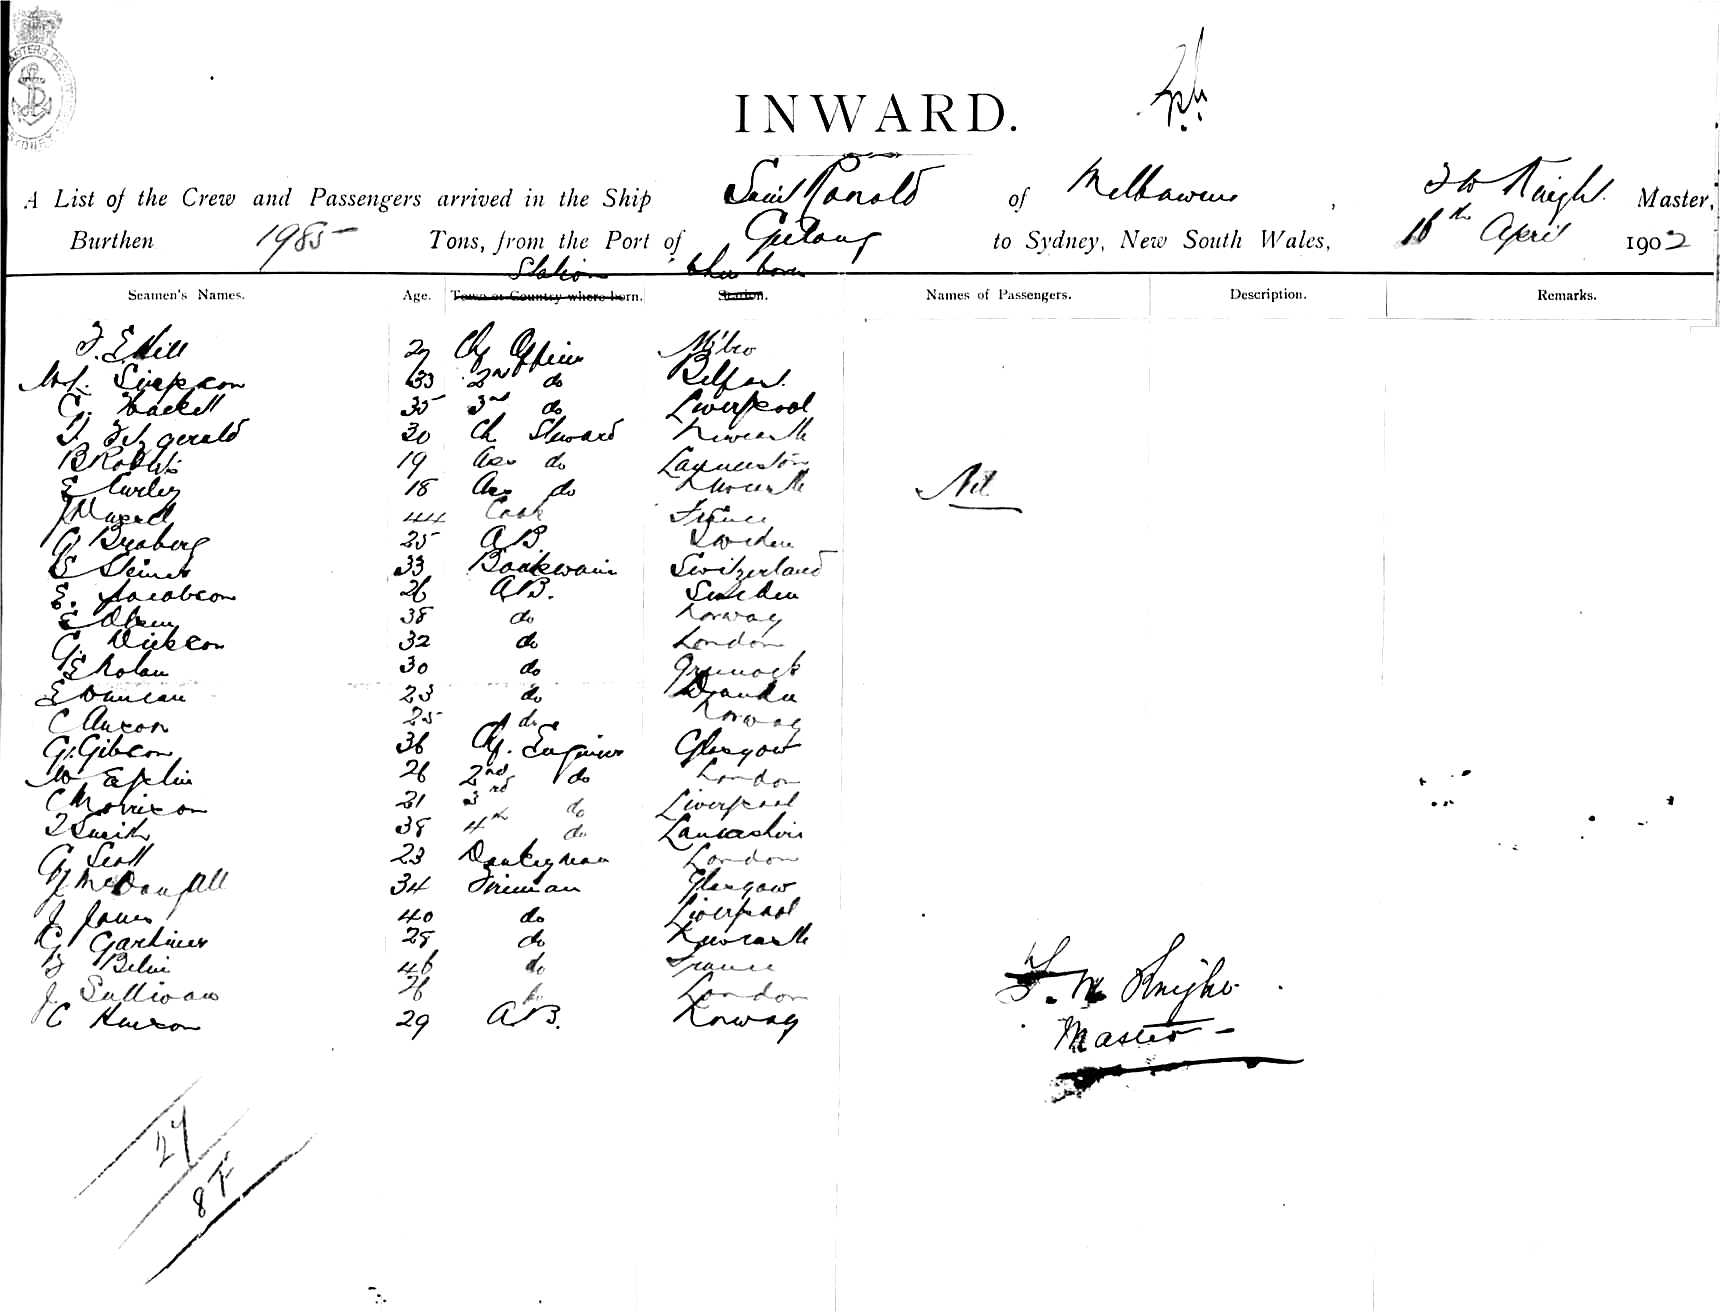 INWARD.
A List of the Crew and Passengers arrived in the Ship Saint Ronald of Melbourne, Knight Master,
Burthen 1985 Tons, from the Port of Geelong to Sydney, New South Wales, 16th April 1902
Station Where born
Seamen's Names. Age. Town or Country where born. Station. Names of Passengers. Description. Remarks.
F. E Hill 27 Ch Officer
Simpson 33 2nd do Belfast
C. Hackett 35 3rd do Liverpool
Fitzgerald 30 Ch Steward Newcastle
B Roberts 19 Ass do Launceston
E Curley 18 Ass do Newcastle Nil
44 Cook France
Broberg 25 AB Sweden
E Steiner 33 Boatswain Switzerland
E. Jacobson 26 AB. Sweden
E Olsen 38 do Norway
G. Dickson 32 do London
E Nolan 30 do Greenock
E Duncan 23 do Dundee
C Anxon 25 do Norway
G. Gibson 36 Ch. Engineer Glasgow
W Eaplin 26 2nd do London
C Morrison 21 3rd do Liverpool
T Smith 38 4th do Lancashire
G Scott 23 Donkeyman London
J McDougall 34 Fireman Glasgow
J. Jones 40 do Liverpool
G Gardiner 28 do Newcastle
Belin 46 do France
J. Sullivan 26 do London
C Henxon 29 AB. Norway
F. W Knight
Master
27
8F